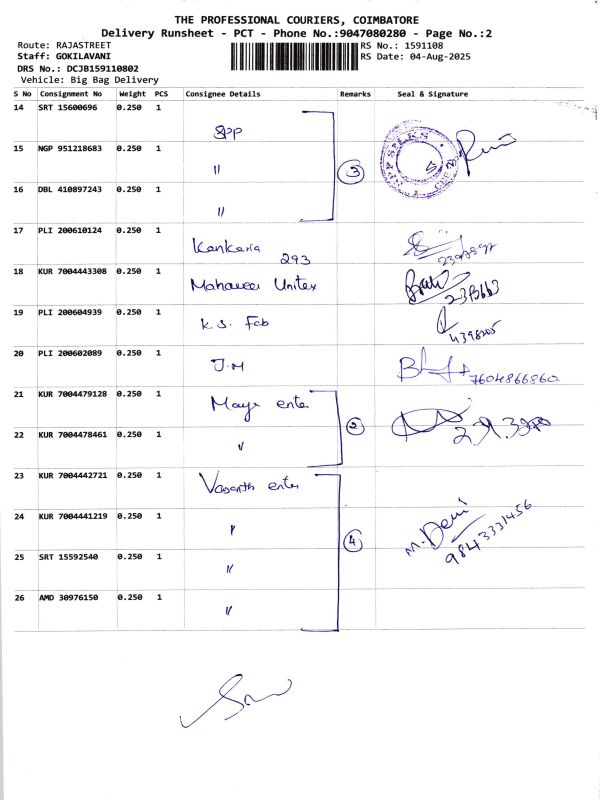 THE PROFESSIONAL COURIERS, COIMBATORE
Delivery Runsheet - PCT - Phone No.:9047080280 - Page No.:2
Route: RAJASTREET
RS No.: 1591108
Staff: GOKILAVANI
RS Date: 04-Aug-2025
DRS No.: DCJB159110802
Vehicle: Big Bag Delivery
S No Consignment No Weight PCS Consignee Details Remarks Seal & Signature
14 SRT 15600696 0.250 1 SPP
15 NGP 951218683 0.250 1 "
3
16 DBL 410897243 0.250 1 "
17 PLI 200610124 0.250 1 Kankaria 293
18 KUR 7004443308 0.250 1 Mahaveer Unitex
19 PLI 200604939 0.250 1 K.S. Fab
4398205
20 PLI 200602089 0.250 1 J.M
7604866860
21 KUR 7004479128 0.250 1 enter
2
22 KUR 7004478461 0.250 1 "
23 KUR 7004442721 0.250 1 Vasanth enter
24 KUR 7004441219 0.250 1 "
4 M. Devi
9843331456
25 SRT 15592540 0.250 1 "
26 AMD 30976150 0.250 1 "